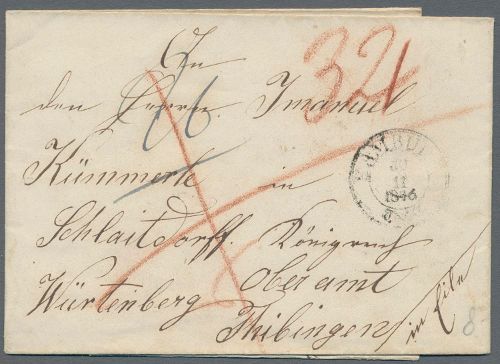 An
den Herrn Imanuel
Kümmerle in
Schlaitdorff. Königreich
Würtenberg Oberamt
Thibingen
in Eile
32
11
1846
8